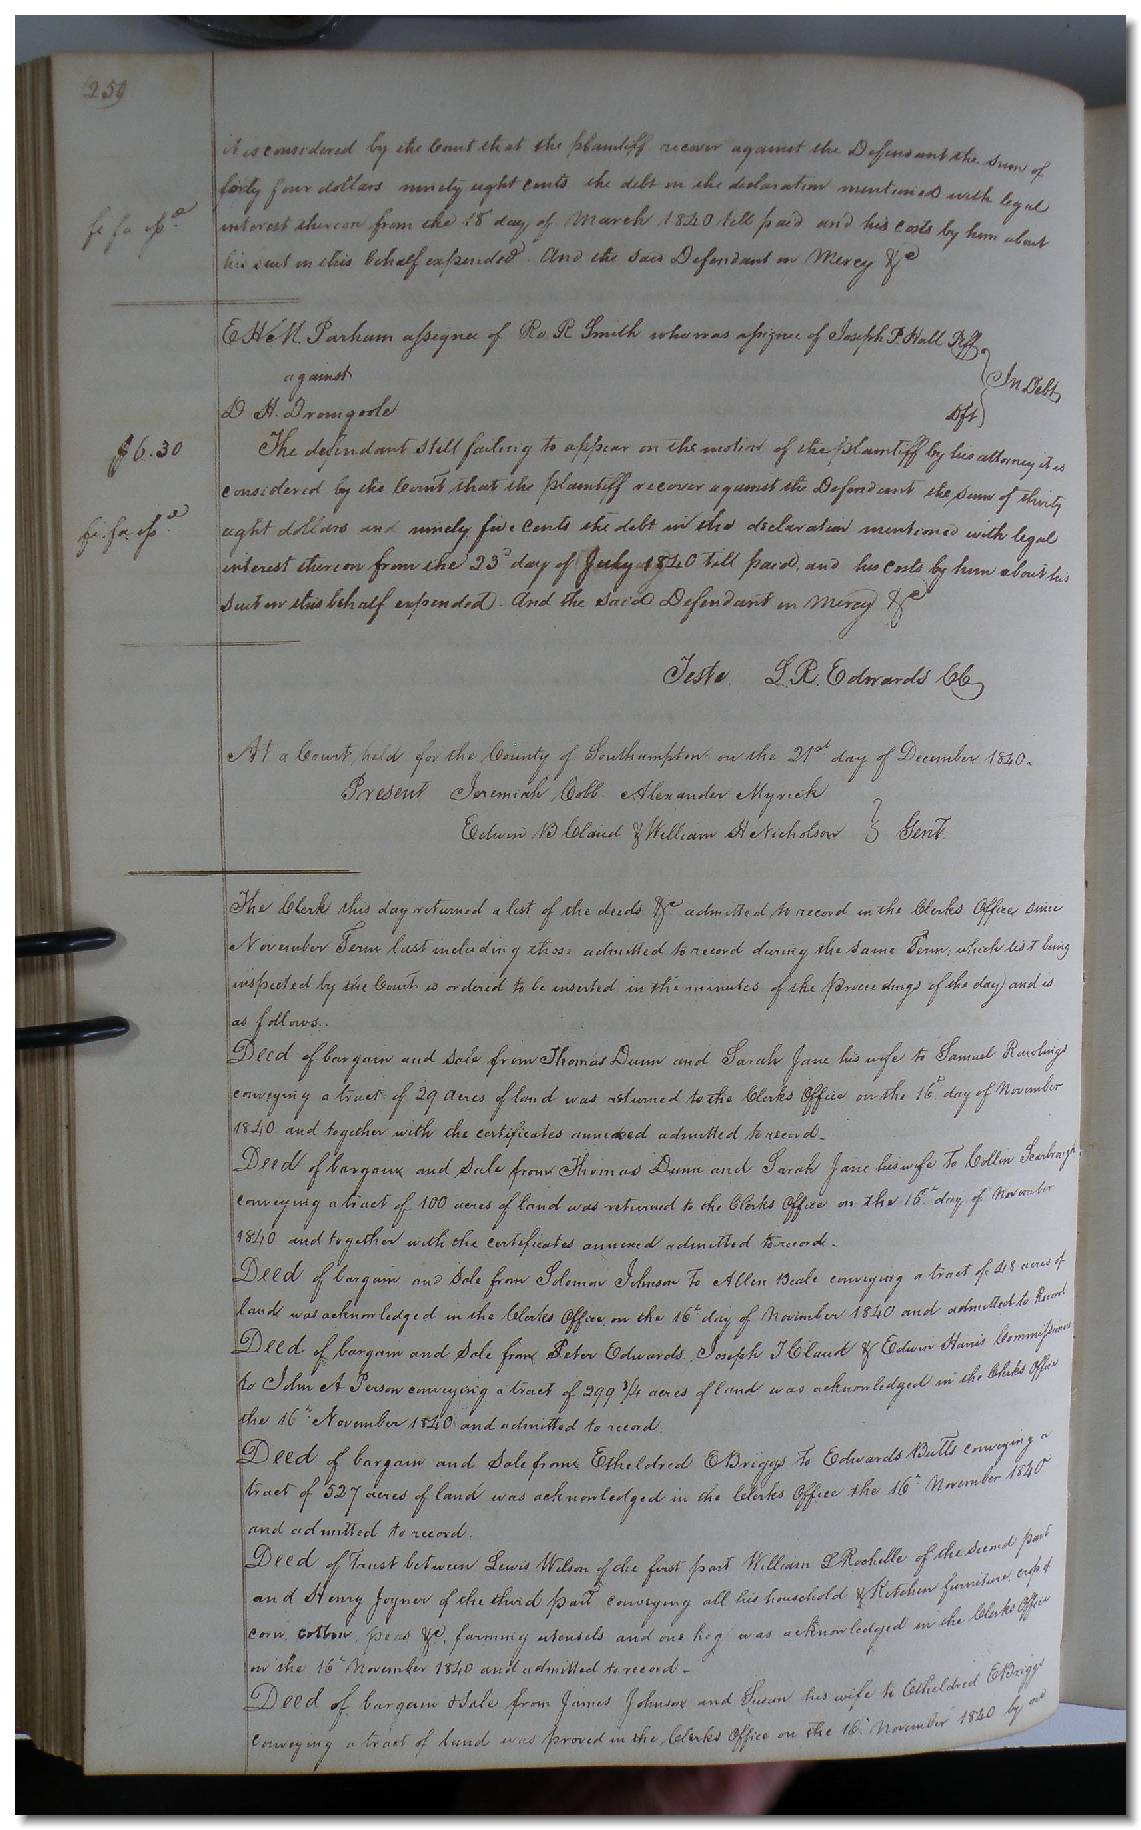 259
it is considered by the Court that the plaintiff recover against the Defendant the sum of
forty four dollars ninety eight cents the debt in the declaration mentioned with legal
fi fa
interest thereon from the 18 day of March 1840 till paid and his costs by him about
his suit in this behalf expended. And the said Defendant in Mercy &c
E H & M. Parham assignee of Ro. R Smith who was assignee of Joseph P. Hall Plff
against
In Debt
D H. Dromgoole
Dft
$6.30
The defendant still failing to appear on the motion of the plaintiff by his attorney it is
considered by the Court that the plaintiff recover against the Defendant the sum of thirty
fi fa
eight dollars and ninety five cents the debt in the declaration mentioned with legal
interest thereon from the 23d day of July 1840 till paid, and his costs by him about his
suit in this behalf expended. And the said Defendant in Mercy &c
Teste. L. R. Edwards CC
At a Court held for the County of Southampton on the 21st day of December 1840.
Present Jeremiah Cobb Alexander Myrick
Edwin B Claud & William H Nicholson Gent.
The Clerk this day returned a list of the deeds &c admitted to record in the Clerks Office since
November Term last including those admitted to record during the same Term, which list being
inspected by the Court is ordered to be inserted in the minutes of the proceedings of the day and is
as follows.
Deed of bargain and sale from Thomas Dunn and Sarah Jane his wife to Samuel Rawlings
conveying a tract of 29 acres of land was returned to the Clerks Office on the 16th day of November
1840 and together with the certificates annexed admitted to record.
Deed of bargain and Sale from Thomas Dunn and Sarah Jane his wife to Collin
conveying a tract of 100 acres of land was returned to the Clerks Office on the 16th day of November
1840 and together with the certificates annexed admitted to record.
Deed of bargain and Sale from Solomon Johnson to Allen Beale conveying a tract of 48 acres of
land was acknowledged in the Clerks Office on the 16th day of November 1840 and admitted to Record
Deed of bargain and Sale from Peter Edwards, Joseph T Claud & Edwin Harris Commissioners
to John A Person conveying a tract of 299 3/4 acres of land was acknowledged in the Clerks Office
the 16th November 1840 and admitted to record.
Deed of bargain and Sale from Etheldred E Briggs to Edwards Butts conveying a
tract of 527 acres of land was acknowledged in the Clerks Office the 16th November 1840
and admitted to record.
Deed of Trust between Lewis Wilson of the first part William L Rochelle of the second part
and Henry Joyner of the third part conveying all his household & Kitchen furniture, crop of
corn, cotton, peas &c, farming utensils and one hog was acknowledged in the Clerks Office
on the 16th November 1840 and admitted to record.
Deed of bargain & Sale from James Johnson and Susan his wife to Etheldred E Briggs
conveying a tract of land was proved in the Clerks Office on the 16th November 1840 by